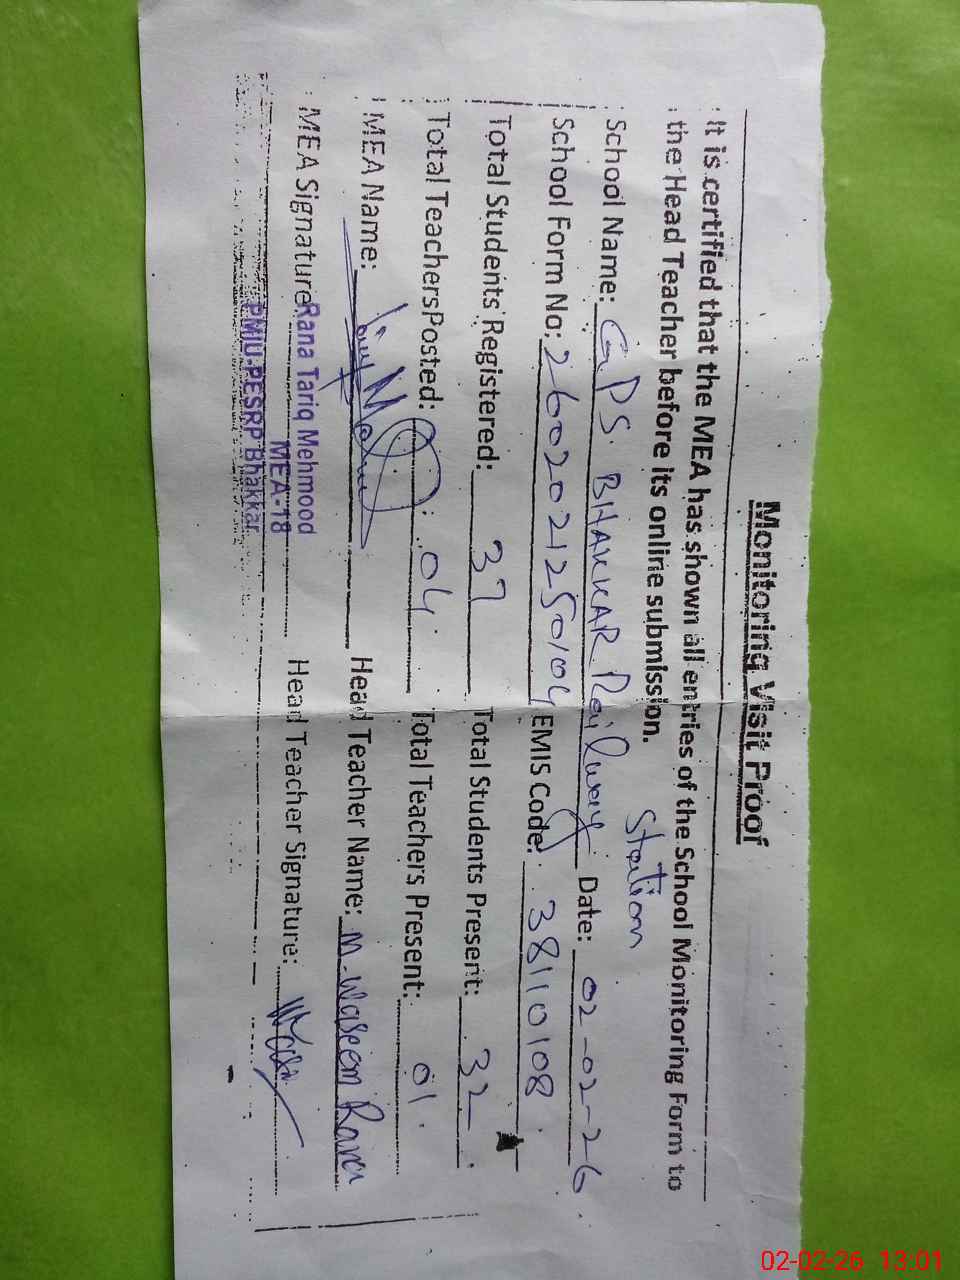 Monitoring Visit Proof
It is certified that the MEA has shown all entries of the School Monitoring Form to
the Head Teacher before its online submission.
School Name: GPS BHAKKAR Railway Station Date: 02-02-26
School Form No: 26002021250104 EMIS Code: 38110108
Total Students Registered: 37 Total Students Present: 32
Total Teachers Posted: 04 Total Teachers Present: 01
MEA Name: Head Teacher Name: M. Waseem Rana
MEA Signature: Head Teacher Signature:
Rana Tariq Mehmood
MEA-18
PMIU-PESRP Bhakkar
02-02-26 13:01